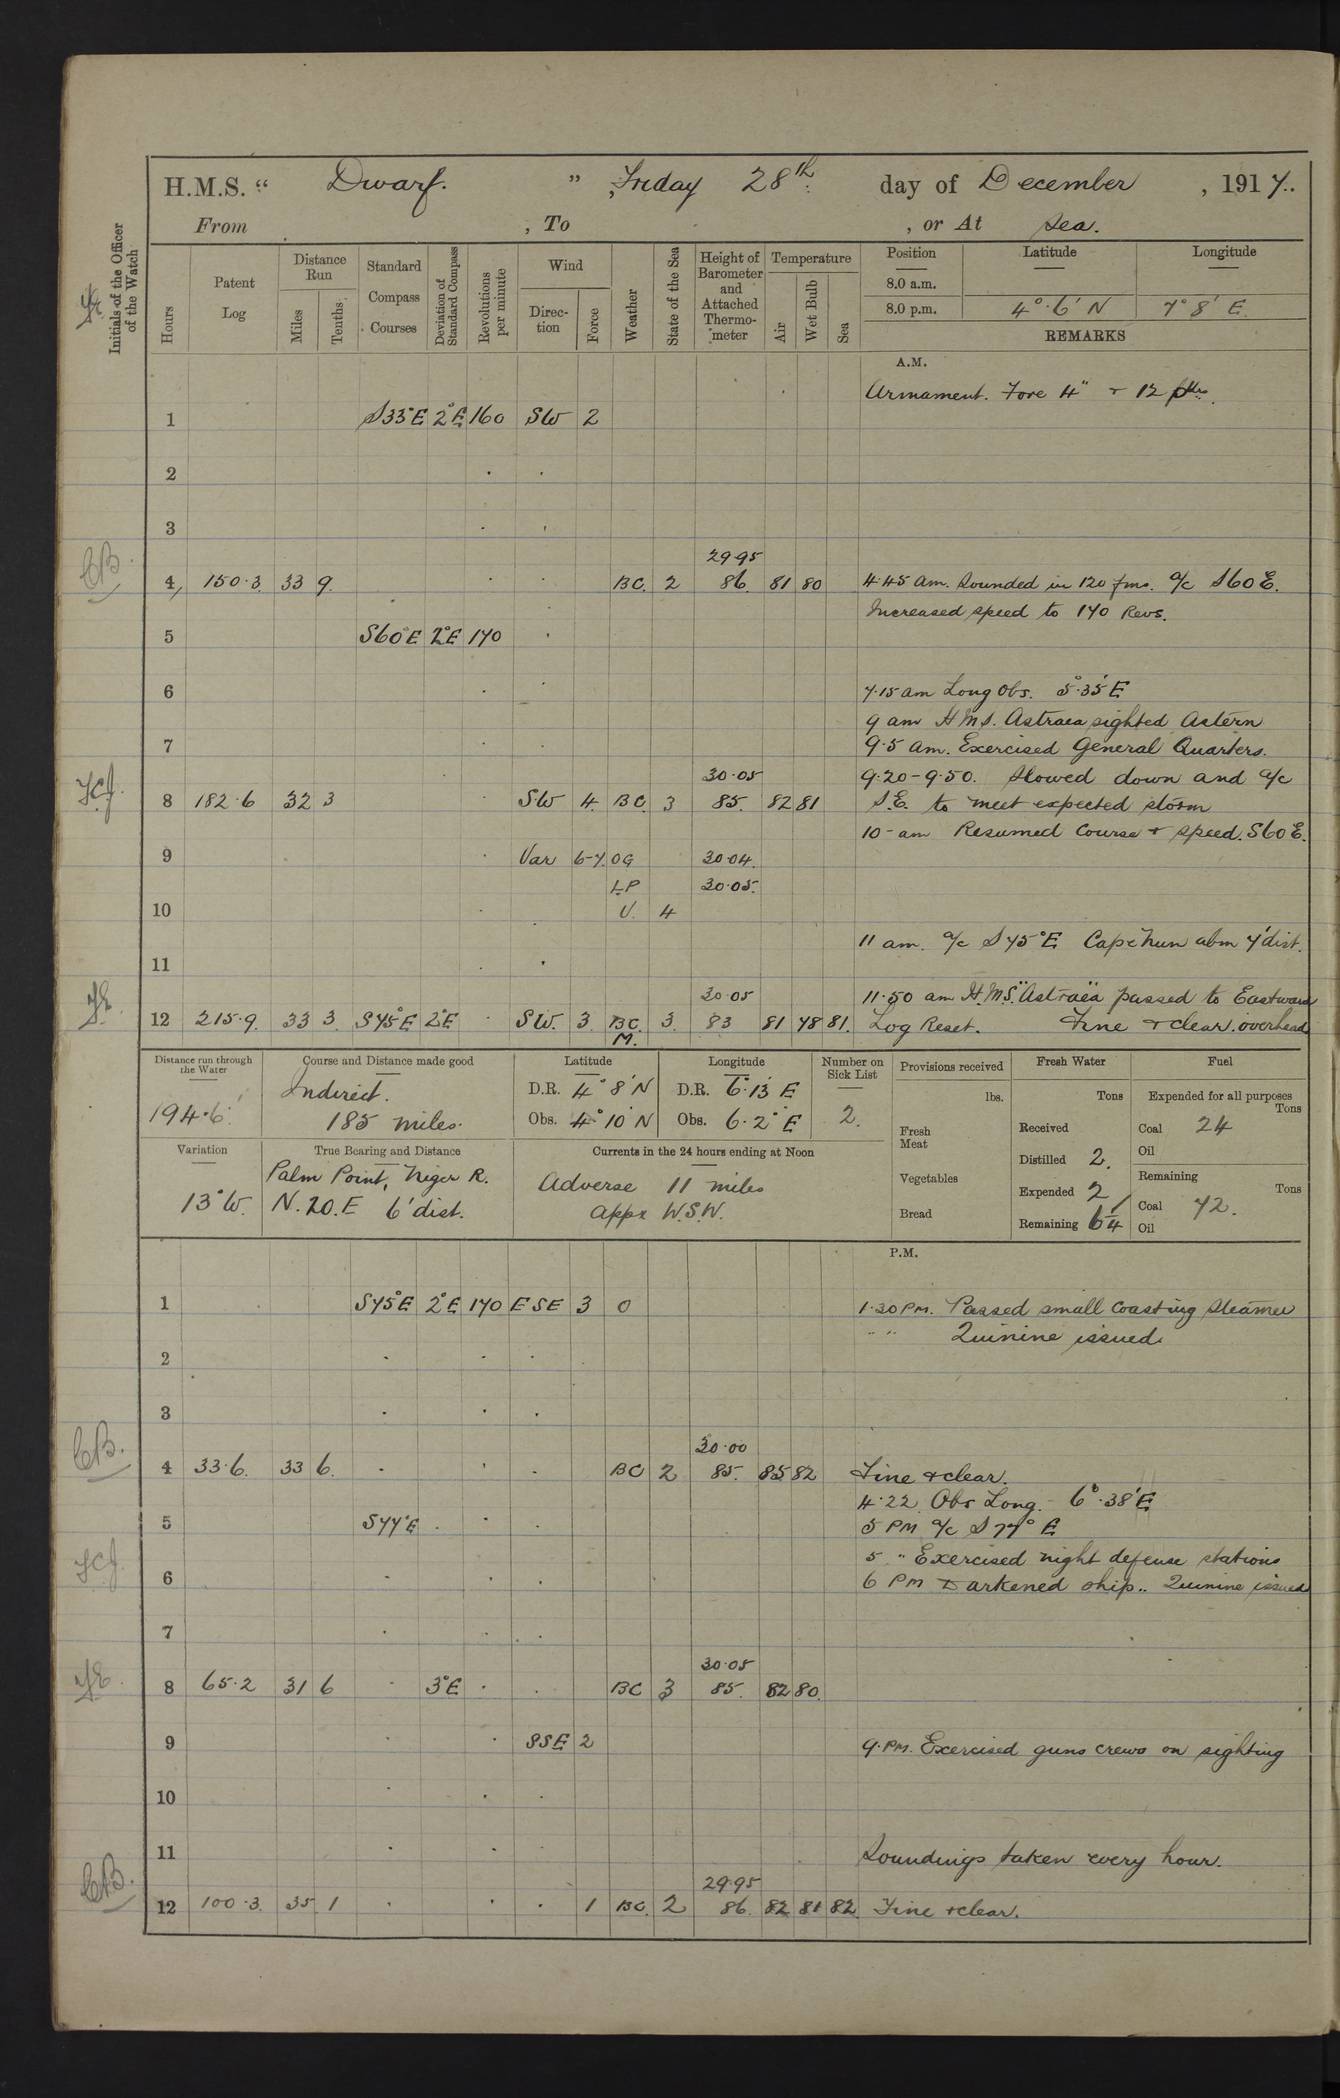 H.M.S. “ Dwarf. ” , Friday 28th day of December , 1917.
From , To , or At Sea.
Initials of the Officer of the Watch
Hours Patent Log Distance Run Miles Tenths Standard Compass Courses Deviation of Standard Compass Revolutions per minute Wind Direction Force Weather State of the Sea Height of Barometer and Attached Thermometer Temperature Air Wet Bulb Sea Position Latitude Longitude
8.0 a.m.
8.0 p.m. 4°·6' N 7° 8' E.
REMARKS
A.M.
Armament. Fore 4" + 12 pdr.
1 S33°E 2°E 160 SW 2
2
3
29·95
CB. 4 150·3 33 9. BC. 2 86. 81 80 4·45 am. Sounded in 120 fms. a/c S60E.
Increased speed to 170 Revs.
5 S60°E 2°E 170
6 7·15 am Long Obs. 5°·35'E
9 am HMS. Astraea sighted Astern
7 9·5 am. Exercised General Quarters.
30·05 9·20-9·50. Slowed down and a/c
8 182·6 32 3 SW 4. BC. 3 85. 82 81 S.E. to meet expected storm
10- am Resumed Course + speed. S60E.
9 Var 6-7. OG 30·04.
LP 30·05.
10 U. 4
11 am. a/c S75°E Cape Nun abm 7'dist.
11
30·05 11·50 am H.M.S. "Astraëa" passed to Eastward
12 215·9. 33 3. S75°E 2°E SW. 3. BC. 3. 83 81 78 81. Log Reset. Fine + clear. overhead
M.
Distance run through the Water Course and Distance made good Latitude Longitude Number on Sick List Provisions received Fresh Water Fuel
194·6' Indirect. 185 miles. D.R. 4° 8'N D.R. 6°·13' E 2. lbs. Tons Expended for all purposes Tons
Obs. 4° 10' N Obs. 6·2° E Fresh Meat Received Coal 24
Oil
Variation True Bearing and Distance Currents in the 24 hours ending at Noon Distilled 2. Remaining Tons
Palm Point, Niger R. Adverse 11 miles Vegetables Expended 2
13°W. N.20.E 6'dist. appx W.S.W. Bread Remaining 64 Coal 72.
Oil
P.M.
1 S75°E 2°E 170 ESE 3 O 1·30 PM. Passed small Coasting Steamer
" " Quinine issued.
2
3
30·00
CB. 4 33·6. 33 6. BC 2 85. 85 82 Fine + clear.
4·22. Obs Long. 6°·38'E
5 S77°E 5 PM a/c S77° E
5 " Exercised night defense stations
6 6 PM Darkened ship.. Quinine issued
7
30·05
8 65·2 31 6 3°E BC 3 85. 82 80.
9 SSE 2 9·PM. Exercised guns crews on sighting
10
11 Soundings taken every hour.
29·95
CB. 12 100·3. 35 1 1 BC. 2 86. 82 81 82. Fine + clear.